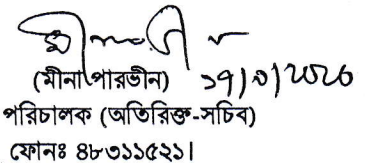 (মীনা পারভীন)
পরিচালক (অতিরিক্ত-সচিব)
ফোনঃ ৪৮৩১১৫২১।